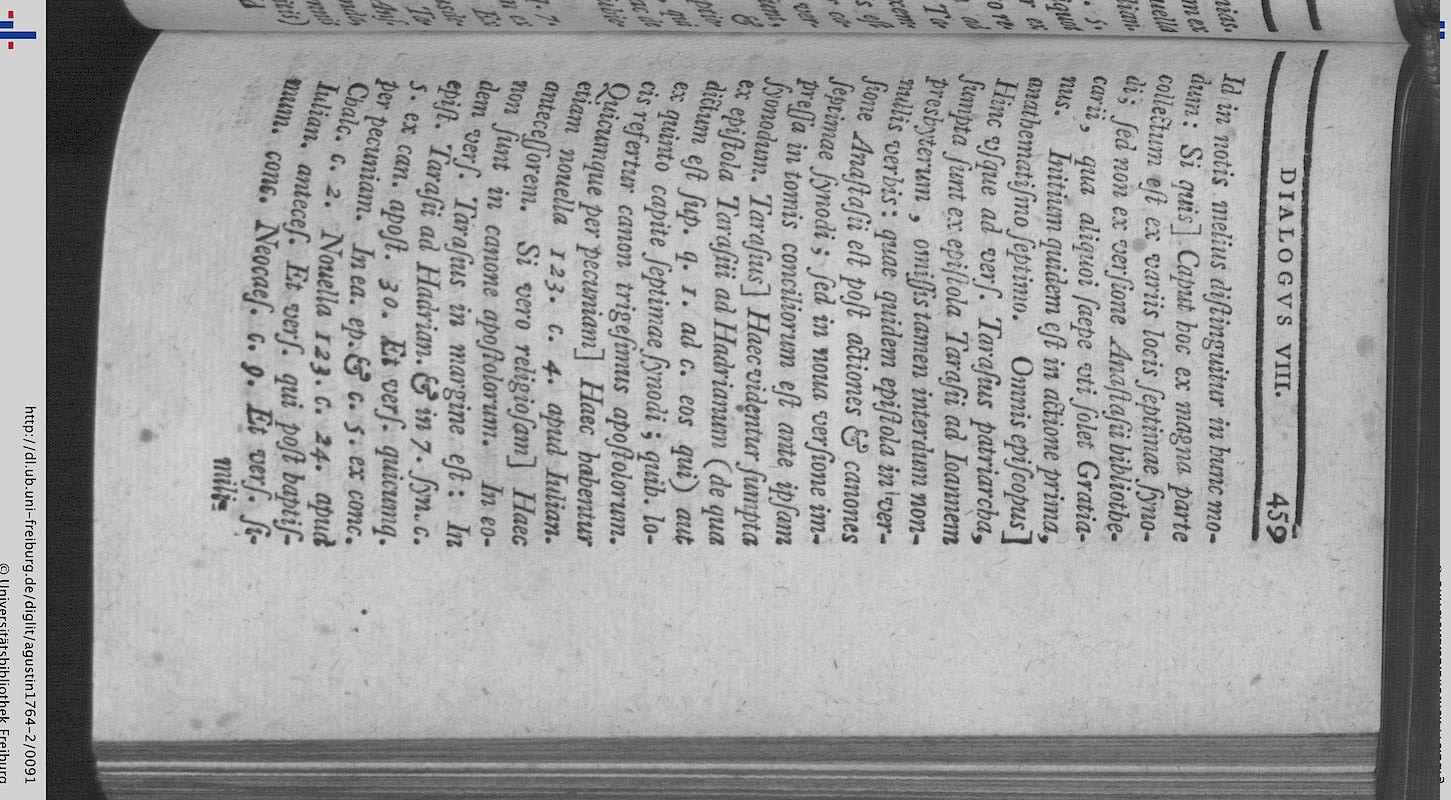 DIALOGVS VIII. 459
Id in notis melius diſtinguitur in hunc mo-
dum: Si quis] Caput hoc ex magna parte
collectum eſt ex variis locis ſeptimae ſyno-
di; ſed non ex verſione Anaſtaſii bibliothe-
carii, qua aliquoi ſaepe vti ſolet Gratia-
nus. Initium quidem eſt in actione prima,
anathematiſmo ſeptimo. Omnis epiſcopus]
Hinc vſque ad verſ. Taraſius patriarcha,
ſumpta ſunt ex epiſtola Taraſii ad Ioannem
presbyterum, omiſſis tamen interdum non-
nullis verbis: quae quidem epiſtola in ver-
ſione Anaſtaſii eſt poſt actiones & canones
ſeptimae ſynodi; ſed in noua verſione im-
preſſa in tomis conciliorum eſt ante ipſam
ſyonodum. Taraſius] Haec videntur ſumpta
ex epiſtola Taraſii ad Hadrianum (de qua
dictum eſt ſup. q. 1. ad c. eos qui) aut
ex quinto capite ſeptimae ſynodi; quib. lo-
cis refertur canon trigeſimus apoſtolorum.
Quicumque per pecuniam] Haec habentur
etiam nouella 123. c. 4. apud Iulian.
anteceſſorem. Si vero religioſam] Haec
non ſunt in canone apoſtolorum. In eo-
dem verſ. Taraſius in margine eſt: In
epiſt. Taraſii ad Hadrian. & in 7. ſyn. c.
5. ex can. apoſt. 30. Et verſ. quicumq.
per pecuniam. In ea ep. & c. 5. ex conc.
Chalc. c. 2. Nouella 123. c. 24. apud
Iulian. anteceſ. Et verſ. qui poſt baptiſ-
mum. conc. Neocaeſ. c. 9. Et verſ. ſi-
mili-
http://dl.ub.uni-freiburg.de/diglit/agustin1764-2/0091
© Universitätsbibliothek Freiburg